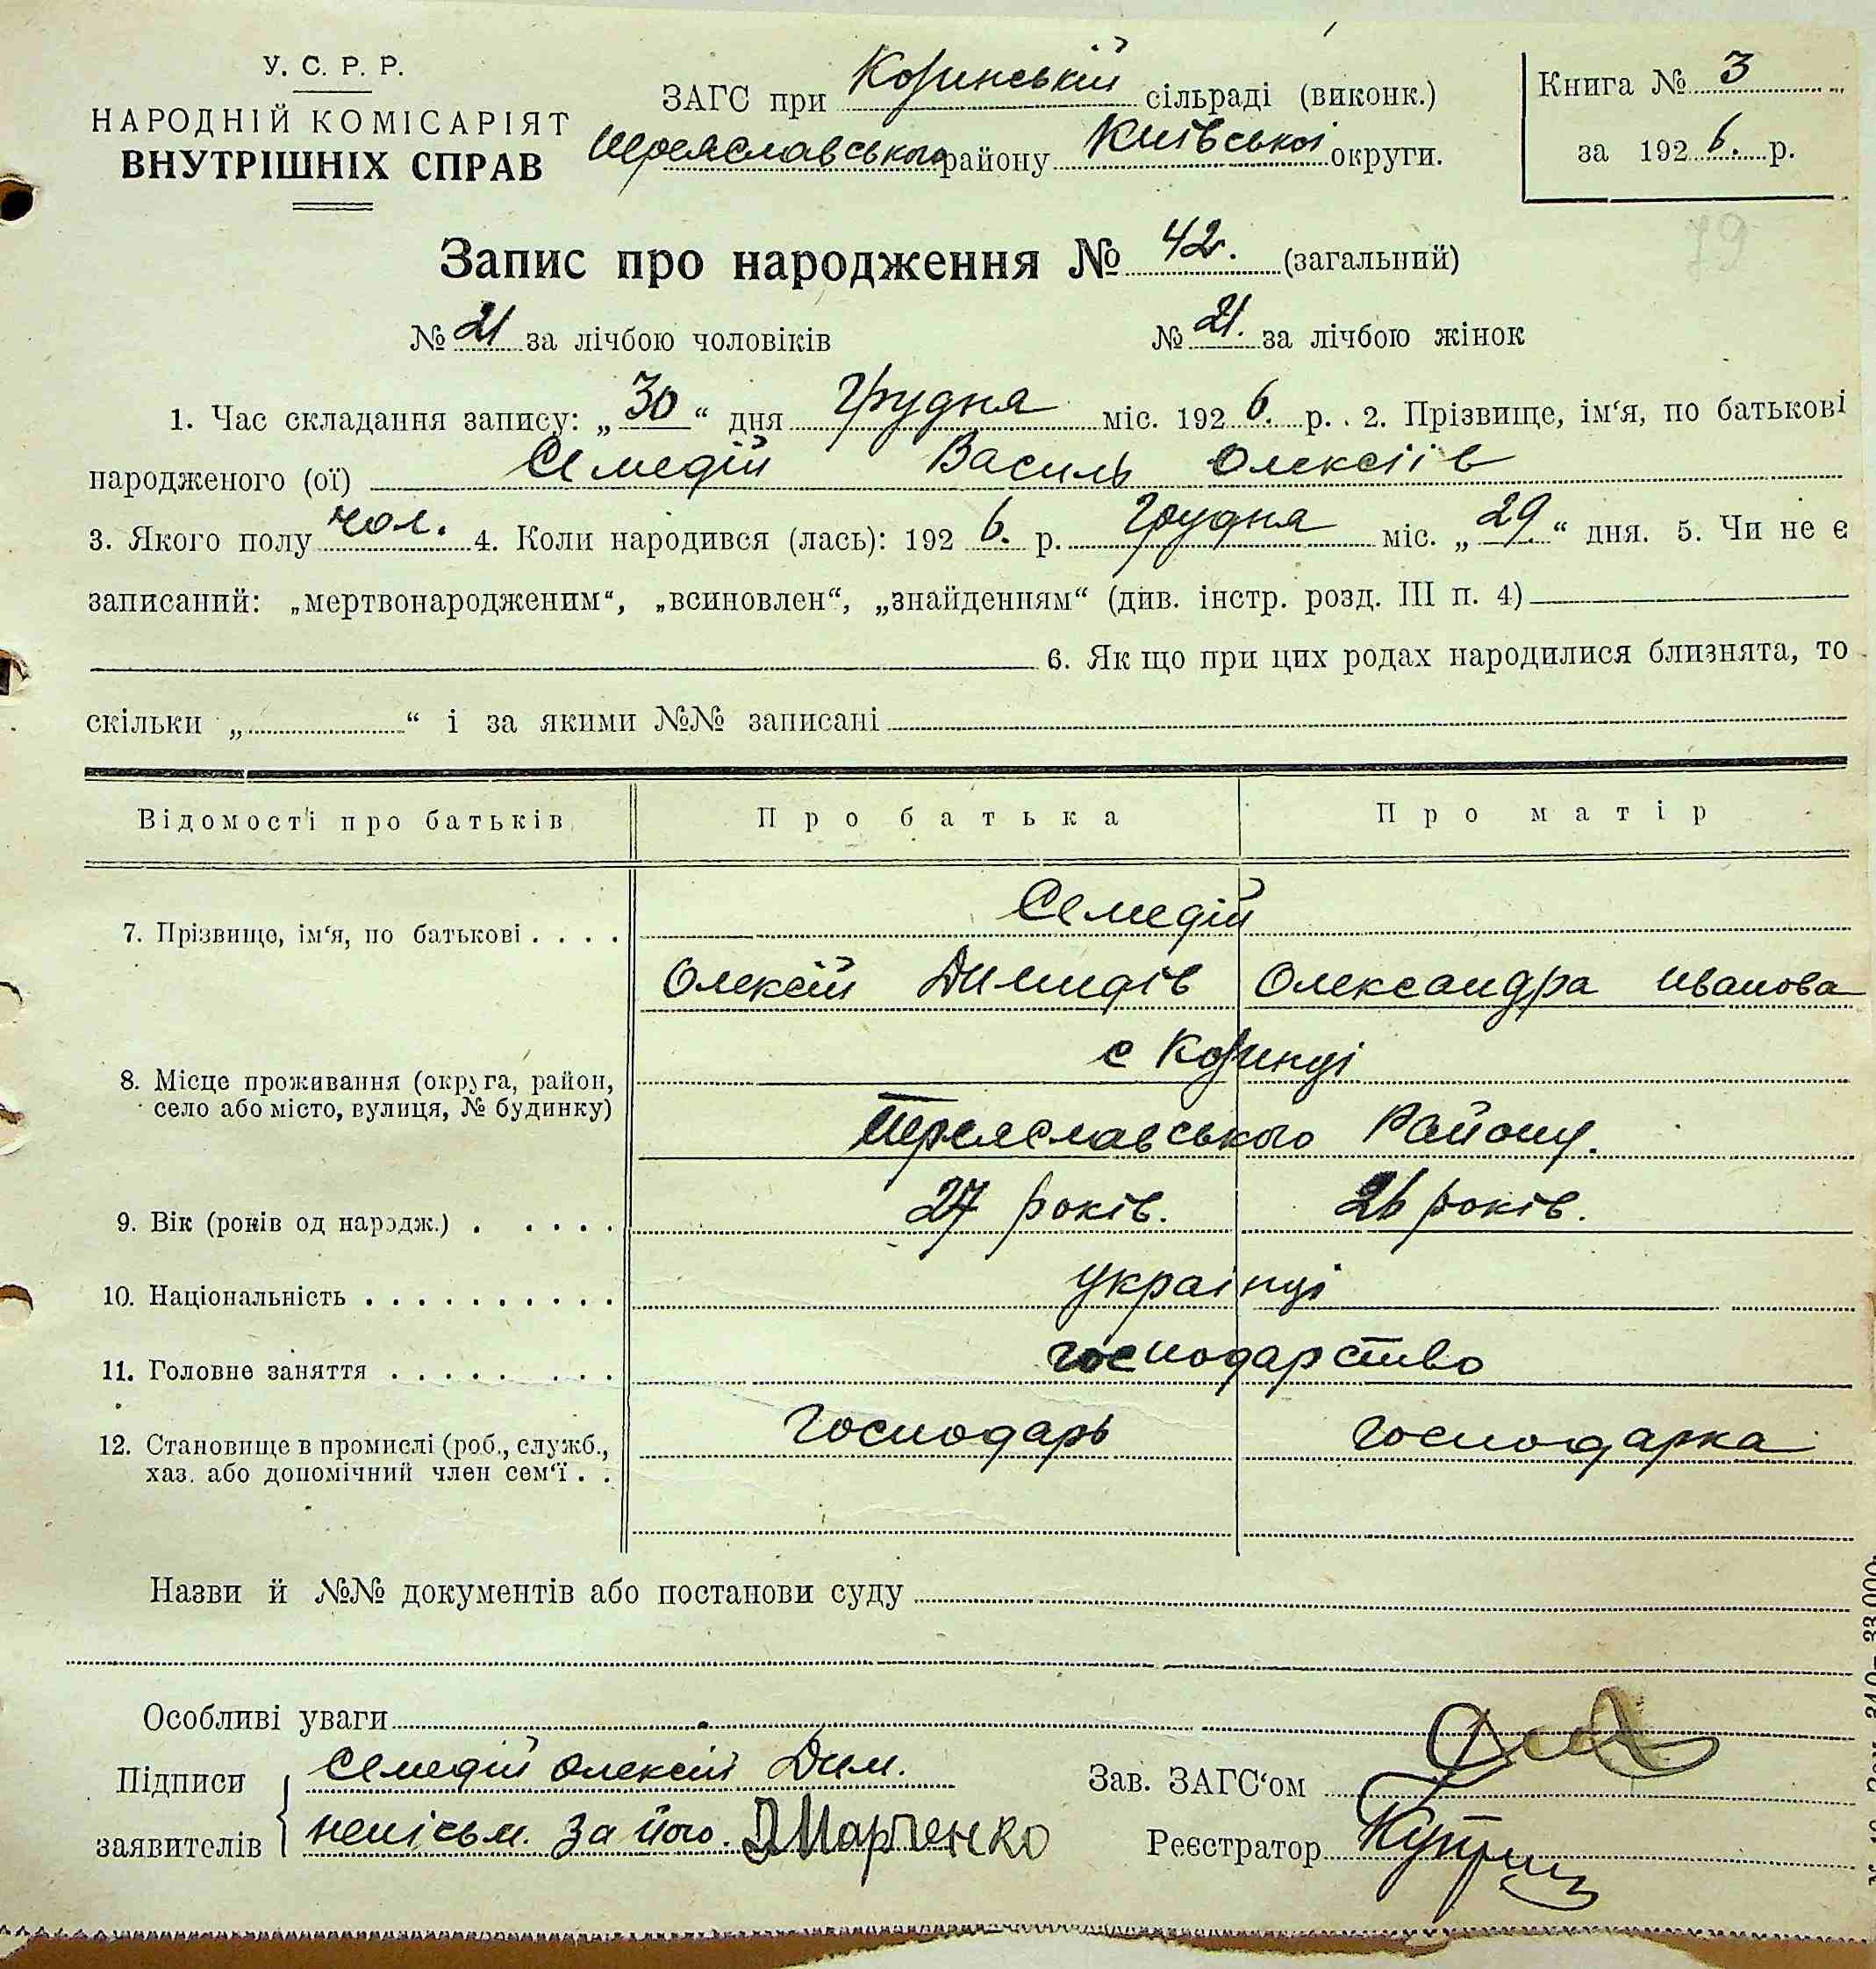 У. С. Р. Р.
НАРОДНІЙ КОМІСАРІЯТ
ВНУТРІШНІХ СПРАВ
ЗАГС при Козинській сільраді (виконк.)
Переяславського району Київської округи.
Книга № 3
за 1926. р.
79
Запис про народження № 42. (загальний)
№ 21 за лічбою чоловіків № 21. за лічбою жінок
1. Час складання запису: „30“ дня Грудня міс. 1926. р. 2. Прізвище, ім‘я, по батькові
народженого (ої) Семедій Василь Олексіїв
3. Якого полу чол. 4. Коли народився (лась): 1926. р. Грудня міс. „29“ дня. 5. Чи не є
записаний: „мертвонародженим“, „всиновлен“, „знайденням“ (див. інстр. розд. III п. 4)
6. Як що при цих родах народилися близнята, то
скільки „ “ і за якими №№ записані
Відомості про батьків Про батька Про матір
7. Прізвище, ім‘я, по батькові . . . . Семедій
Олексій Димидів Олександра Иванова
8. Місце проживання (округа, район, село або місто, вулиця, № будинку) с Козинці
Переяславського Району.
9. Вік (років од народж.) . . . . . 27 років. 26 років.
10. Національність . . . . . . . . . . українці
11. Головне заняття . . . . . . . . господарство
12. Становище в промислі (роб., служб., хаз. або допомічний член сем‘ї . . Господарь господарка
Назви й №№ документів або постанови суду
Особливі уваги
Підписи заявителів Семедій Олексій Дим.
непісьм. За його. Д Марченко
Зав. ЗАГС‘ом
Реєстратор